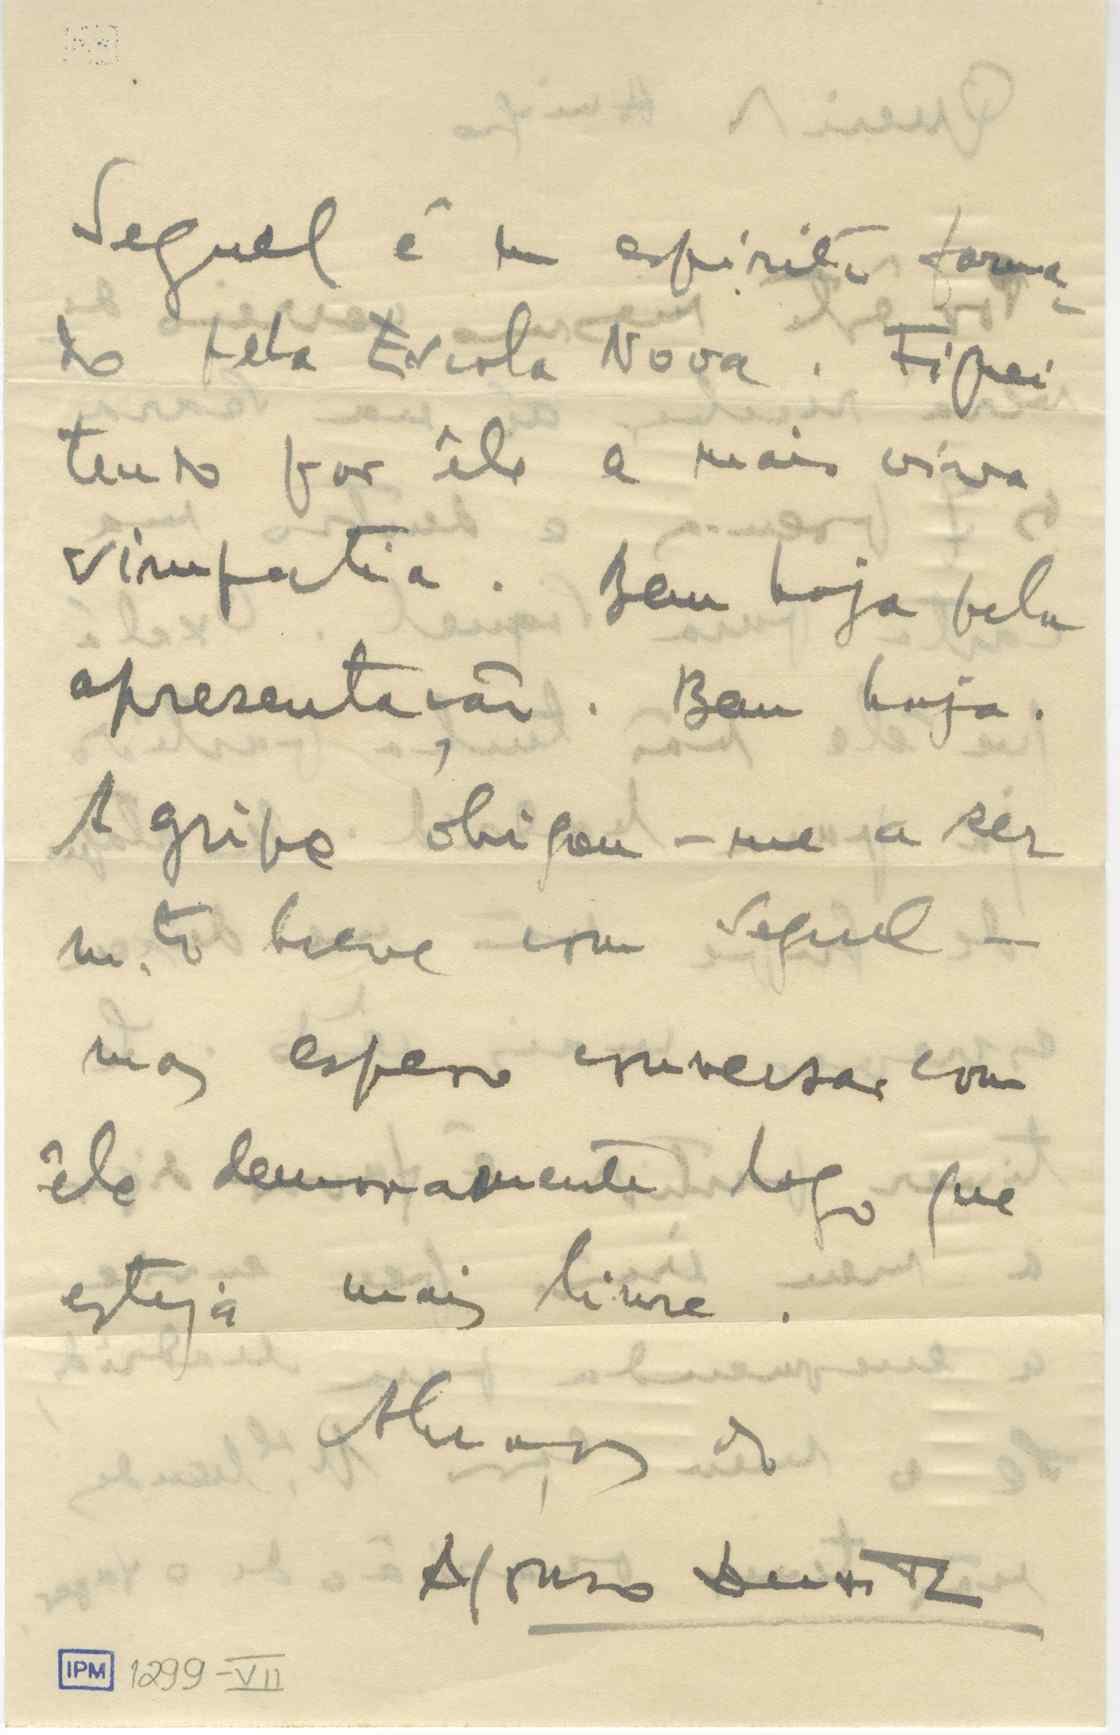 Seguel é um espirito forma-
do pela Escola Nova. Fiquei
tendo por êle a mais viva
simpatia. Bem haja pela
apresentação. Bem haja.
A gripe obigou-me a ser
m.to breve com Seguel -
mas espero conversar com
êle demoramente logo que
esteja mais livre.
Abraços do
Afonso Duarte
IPM 1299-VII